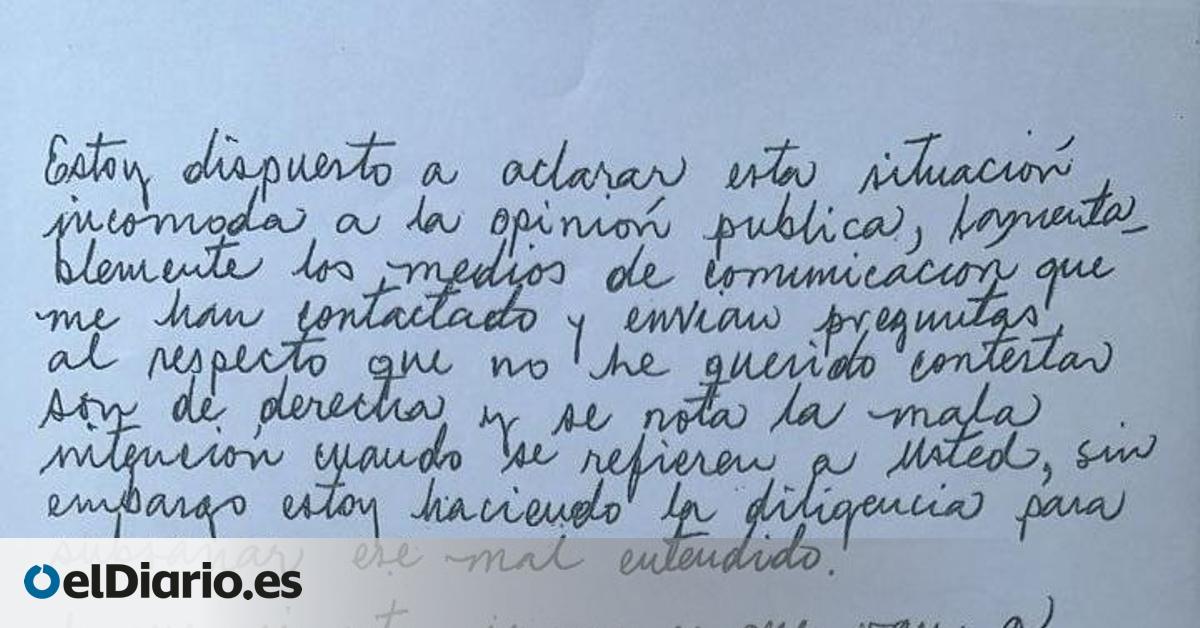 Estoy dispuesto a aclarar esta situación
incomoda a la opinión publica, lamenta_
blemente los medios de comunicación que
me han contactado y envian preguntas
al respecto que no he querido contestar
son de derecha y se nota la mala
intención cuando se refieren a Usted, sin
embargo estoy haciendo la diligencia para
subsanar ese mal entendido.
elDiario.es